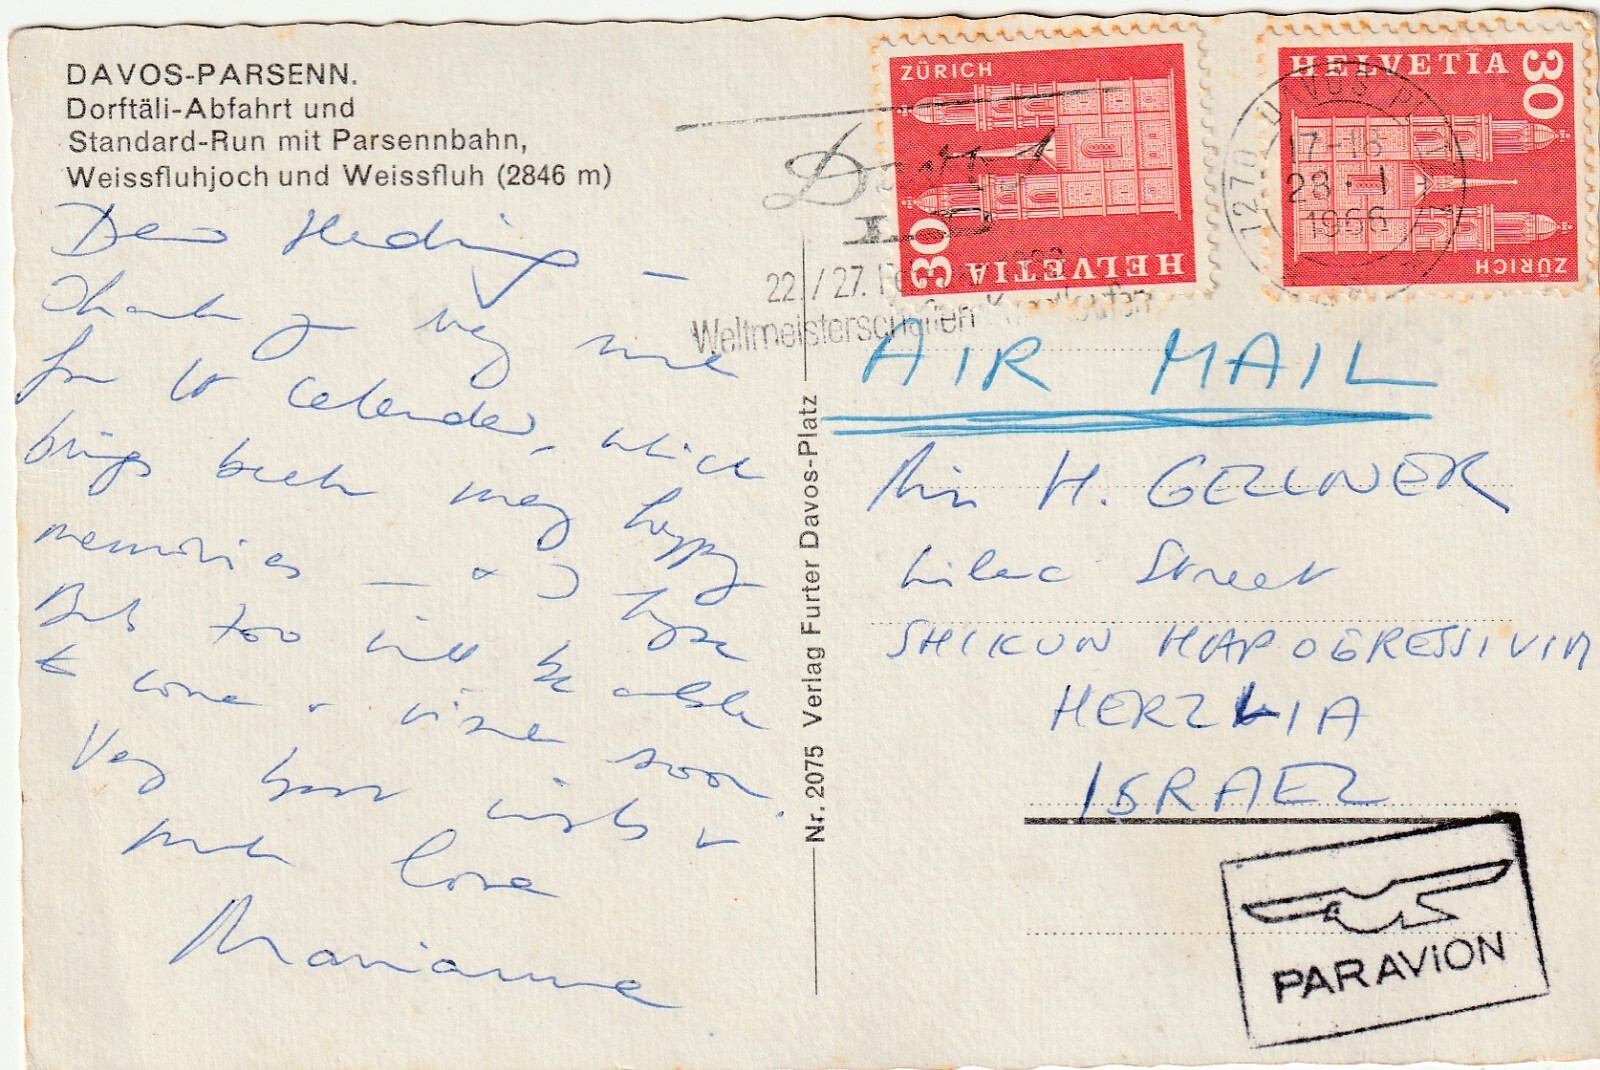 DAVOS-PARSENN.
Dorftäli-Abfahrt und
Standard-Run mit Parsennbahn,
Weissfluhjoch und Weissfluh (2846 m)
Dear
Thank you very much
for the calendar, which
brings back many happy
memories — & I hope
Bob too will be able
to come & visit soon.
Very best wishes &
much love
Marianne
Nr. 2075 Verlag Furter Davos-Platz
ZÜRICH
HELVETIA
30
HELVETIA
30
ZÜRICH
1270 DAVOS PLATZ
17-18
28. 1
1966
22./27.
Weltmeisterschaften
AIR MAIL
H. GELLNER
Lilac Street
SHIKUN HAPOGRESSIVIM
HERZLIA
ISRAEL
PAR AVION